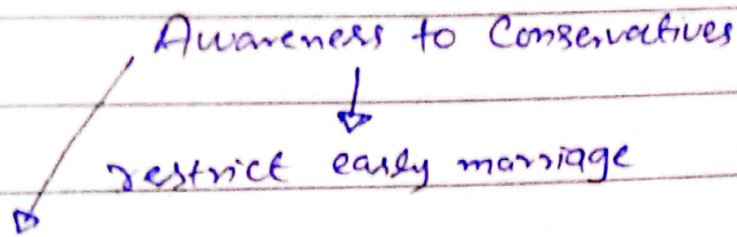 Awareness to Conservatives
restrict early marriage